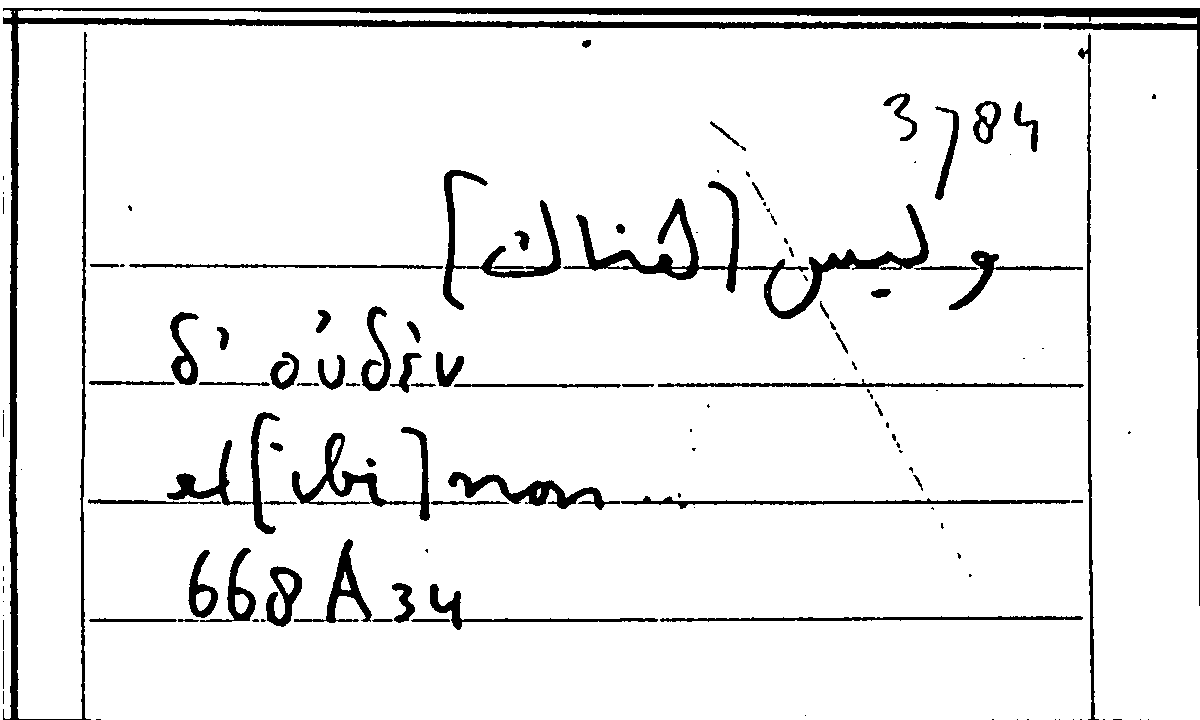 3784
وليس [هناك]
δ' οὐδὲν
et [ibi] non ...
668 A 34